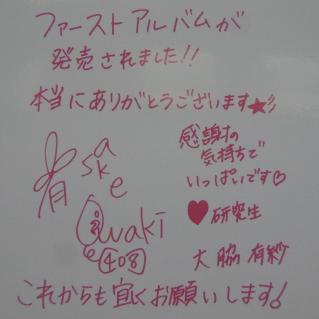 ファーストアルバムが
発売されました!!
本当にありがとうございます★彡
感謝の
気持ちで
いっぱいです♡
♥研究生
大脇 有紗
これからも宜くお願いします!